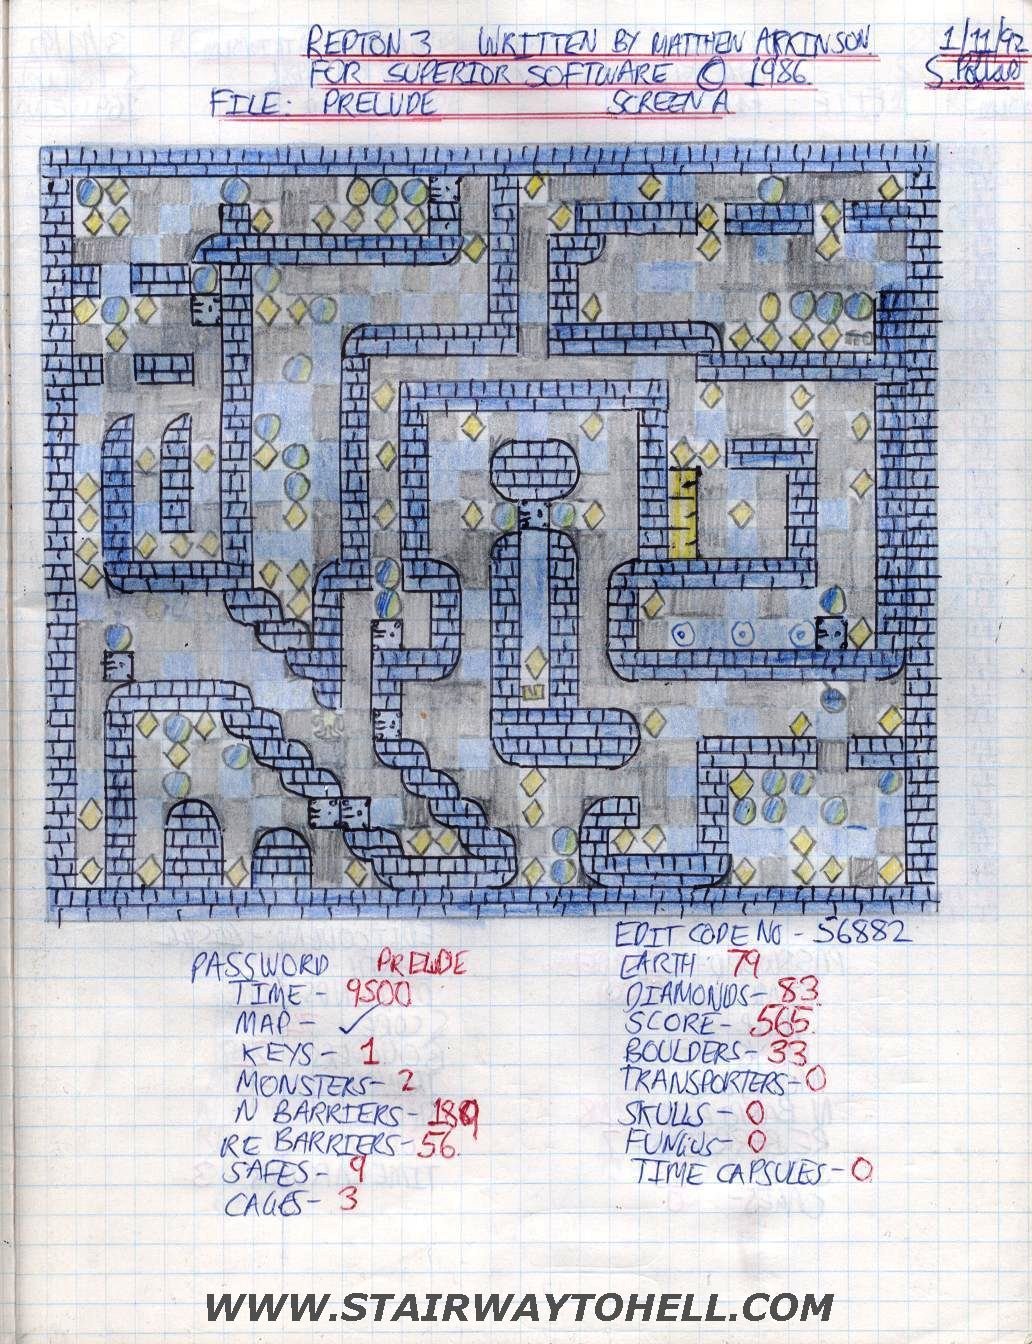 REPTON 3 WRITTEN BY MATTHEW ATKINSON 1/11/92
FOR SUPERIOR SOFTWARE © 1986
FILE: PRELUDE SCREEN A
EDIT CODE NO - 56882
PASSWORD PRELUDE
EARTH - 79
TIME - 9500
DIAMONDS - 83
MAP - ✓
SCORE - 565
KEYS - 1
BOULDERS - 33
MONSTERS - 2
TRANSPORTERS - 0
N BARRIERS - 189
SKULLS - 0
RE BARRIERS - 56
FUNGUS - 0
SAFES - 9
TIME CAPSULES - 0
CAGES - 3
WWW.STAIRWAYTOHELL.COM